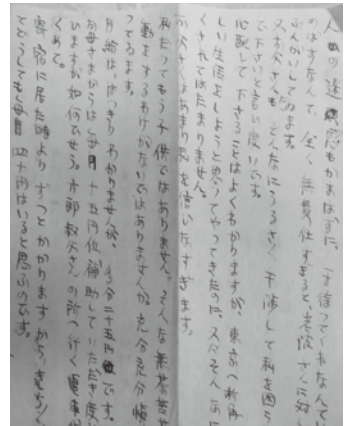 人の迷惑もかまはずに、一寸待つてくれなんて
のはずなんで、全く、無責任すぎると、岩波さんに対し
ふんがいしてゐます。
又お父さんも、そんなにうるさく干渉して私を困ら
で下さいと言い度いです。
心配して下さることはよくわかりますが、東京へ新
しい生活をしようと思つてやつてきたのに、又々そん
くされてはたまりません。
お父さんはあまり私を信じなすぎます。
私だつてもう子供ではありません。そんな無
動をするわけがないではありませんか。充分充分
つてゐます。
月給は、はつきりわかりませんが、多分二十五円です。
お母さまからは毎月十五円位補助していただき度
ひますが如何でせう。
の所へ行く電車
くめて。
に居た時よりずつとかかりますから、
てどうしても毎月四十円はいると思ふのです。